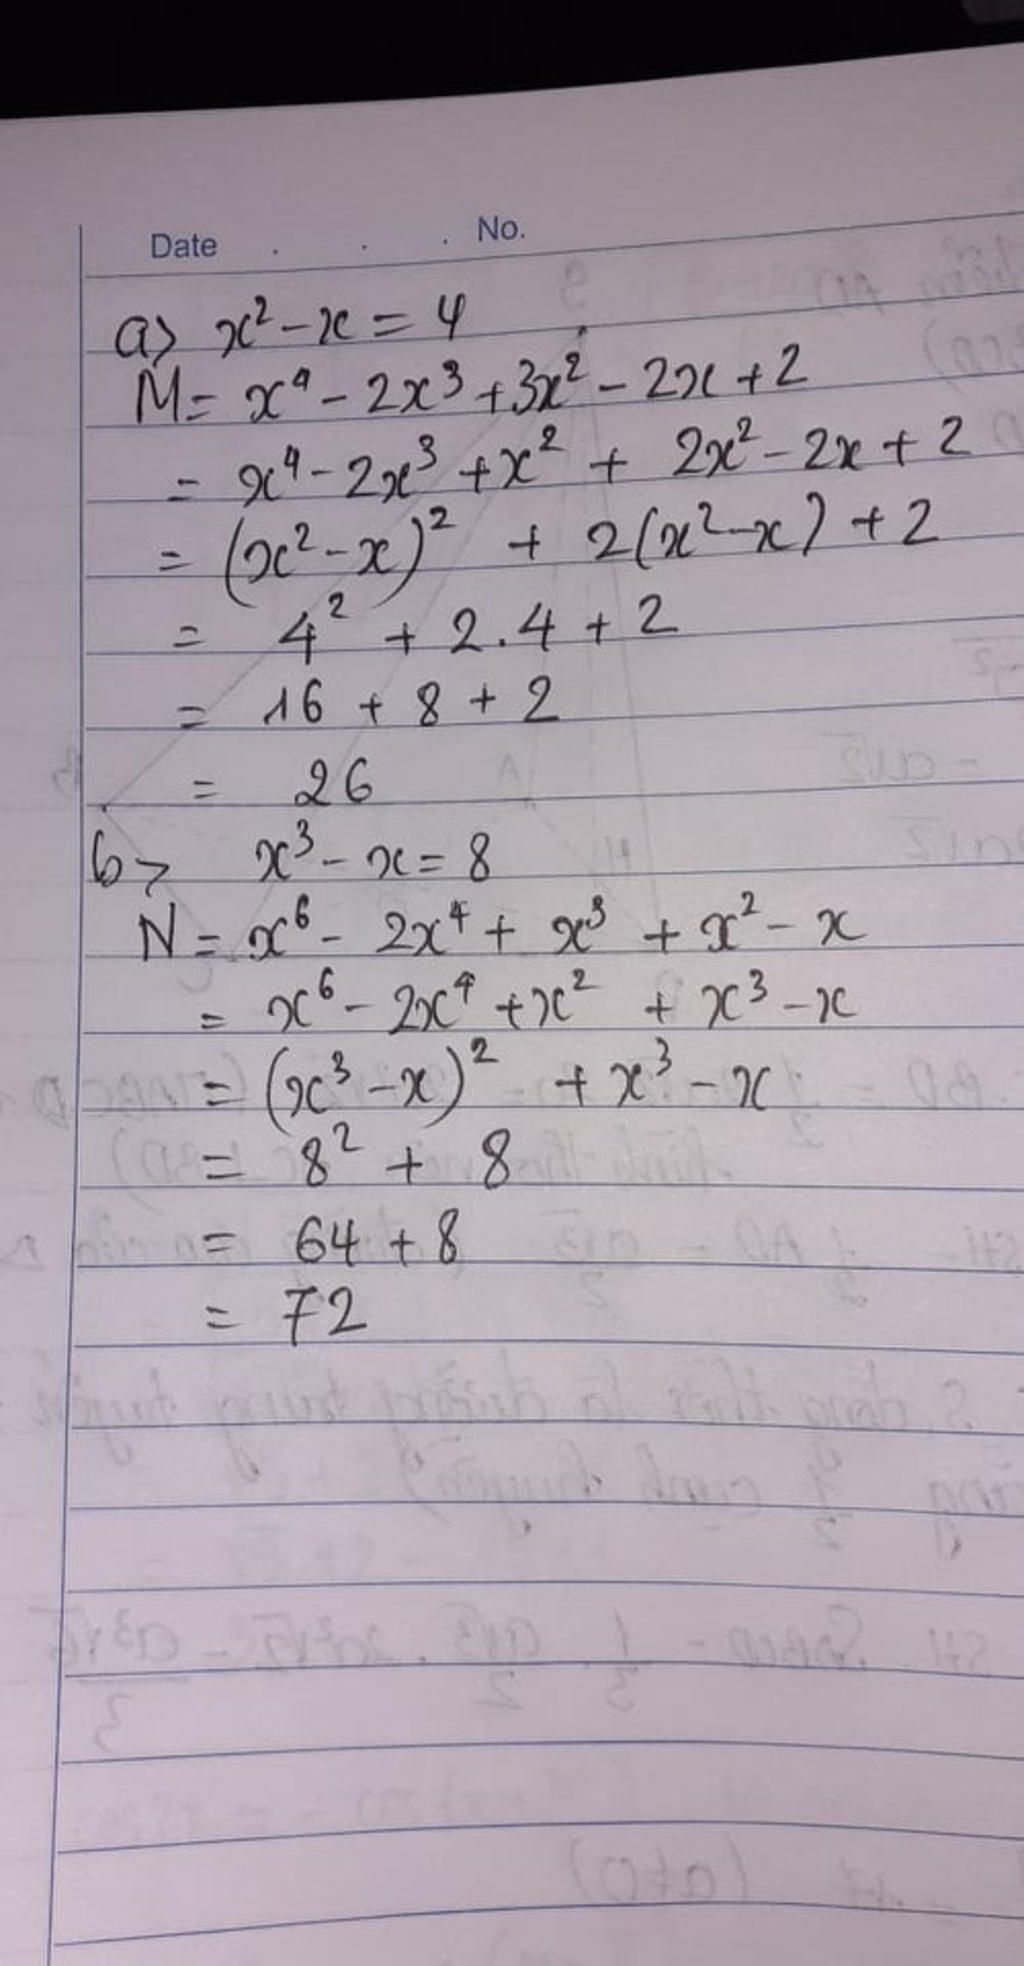 Date . . . No.
a> x² - x = 4
M = x⁴ - 2x³ + 3x² - 2x + 2
= x⁴ - 2x³ + x² + 2x² - 2x + 2
= (x² - x)² + 2(x² - x) + 2
= 4² + 2.4 + 2
= 16 + 8 + 2
= 26
b> x³ - x = 8
N = x⁶ - 2x⁴ + x³ + x² - x
= x⁶ - 2x⁴ + x² + x³ - x
= (x³ - x)² + x³ - x
= 8² + 8
= 64 + 8
= 72